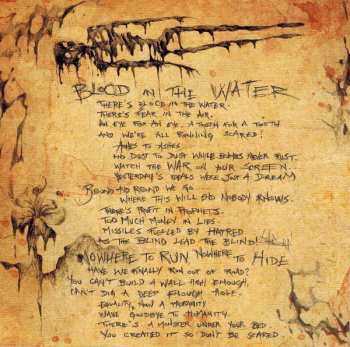 BLOOD IN THE WATER
THERE'S BLOOD IN THE WATER.
THERE'S FEAR IN THE AIR.
AN EYE FOR AN EYE. A TOOTH FOR A TOOTH
AND WE'RE ALL RUNNING SCARED!
ASHES TO ASHES
AND DUST TO DUST WHILE BOMBS NEVER RUST.
WATCH THE WAR ON YOUR SCREEN.
YESTERDAY'S HOPES WERE JUST A DREAM
ROUND AND ROUND WE GO
WHERE THIS WILL END NOBODY KNOWS.
THERE'S PROFIT IN PROPHETS.
TOO MUCH MONEY IN LIES
MISSILES FUELLED BY HATRED
AS THE BLIND LEAD THE BLIND!
NOWHERE TO RUN NOWHERE TO HIDE
HAVE WE FINALLY RUN OUT OF ROAD?
YOU CAN'T BUILD A WALL HIGH ENOUGH,
CAN'T DIG A DEEP ENOUGH HOLE.
EQUALITY, NOW A
WAVE GOODBYE TO HUMANITY.
THERE'S A MONSTER UNDER YOUR BED
YOU CREATED IT SO DON'T BE SCARED